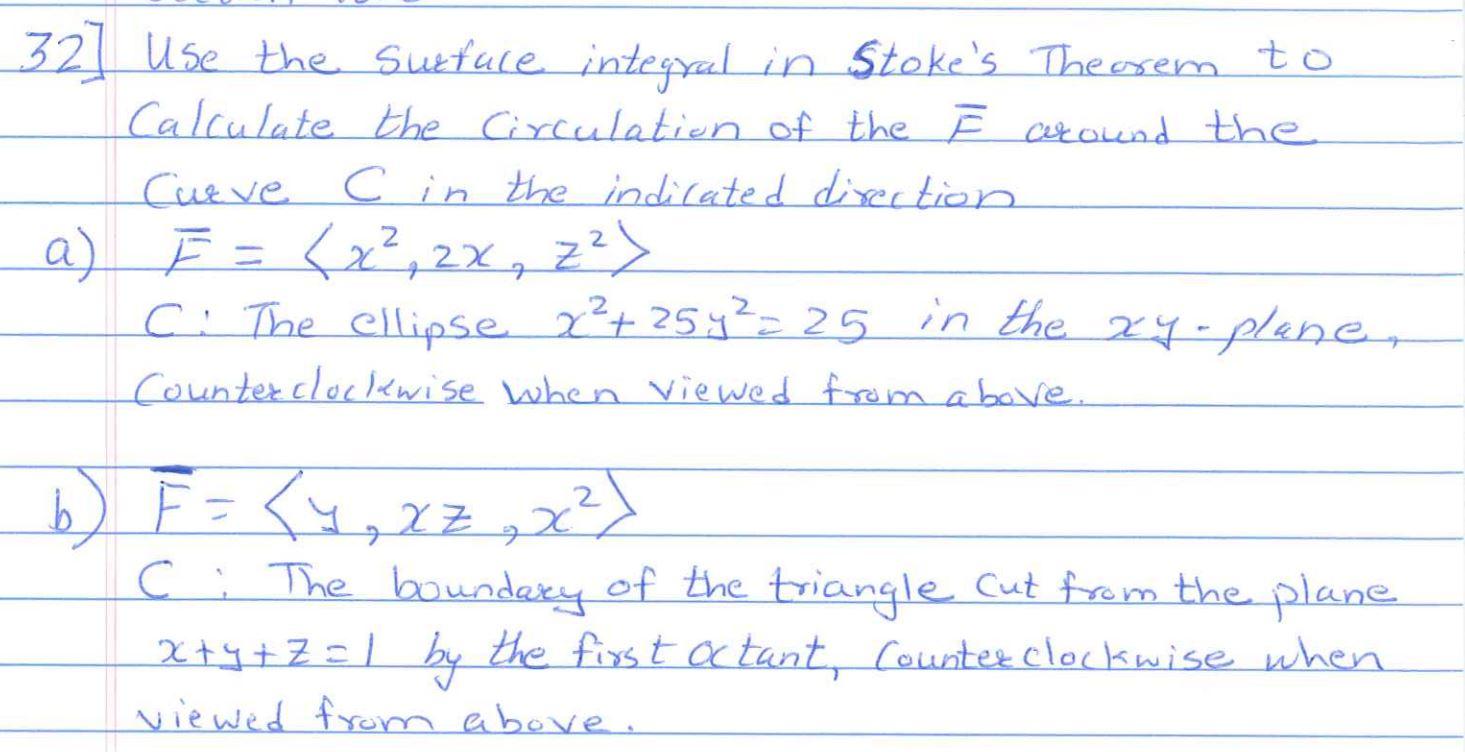 32] Use the surface integral in Stoke's Theorem to
Calculate the Circulation of the F̅ around the
Curve C in the indicated direction
a) F̅ = ⟨x², 2x, z²⟩
C: The ellipse x²+25y²=25 in the xy-plane,
Counterclockwise when viewed from above.
b) F̅ = ⟨y, xz, x²⟩
C: The boundary of the triangle cut from the plane
x+y+z=1 by the first octant, Counterclockwise when
viewed from above.